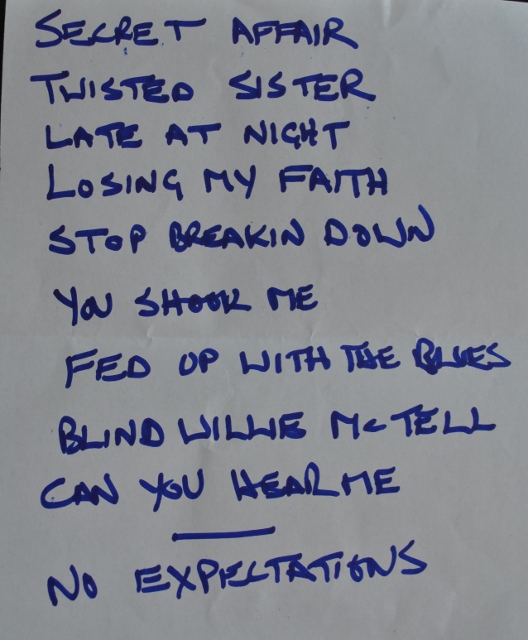 SECRET AFFAIR
TWISTED SISTER
LATE AT NIGHT
LOSING MY FAITH
STOP BREAKIN DOWN
YOU SHOOK ME
FED UP WITH THE BLUES
BLIND WILLIE McTELL
CAN YOU HEAR ME
NO EXPECTATIONS